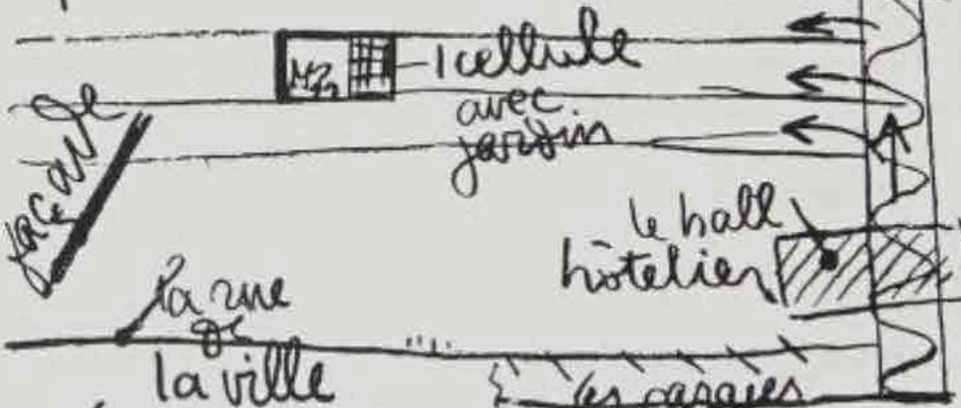 1 cellule
avec
jardin
façade
le hall
hôtelier
la rue
de
la ville
les garages